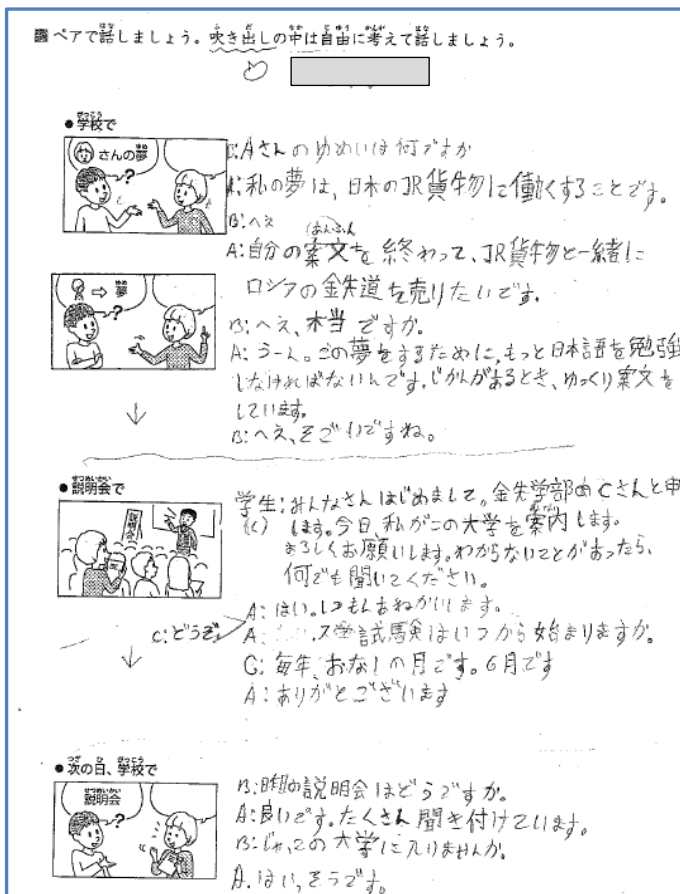 ペアで話しましょう。吹き出しの中は自由に考えて話しましょう。
●学校で
さんの夢
?
B:Aさんのゆめいは何ですか
A:私の夢は、日本のJR貨物に働くすることです。
B:へえ
A:自分の案文を終わって、JR貨物と一緒に
ロシアの鉄道を売りたいです。
⇨ 夢
?
B:へえ、本当ですか。
A:うーん。この夢をするために、もっと日本語を勉強
しなければないんです。じかんがあるとき、ゆっくり案文を
しています。
B:へえ、そごいですね。
●説明会で
説明会
学生:みんなさんはじめまして。金失学部のCさんと申
(C) します。今日、私がこの大学を案内します。
よろしくお願いします。わからないことがあったら、
何でも聞いてください。
A:はい。しつもんおねがいします。
C:どうぞ。
A: 学試験はいつから始まりますか。
C:毎年、おなしの月です。6月です
A:ありがとございます
●次の日、学校で
説明会
?
B:昨日の説明会はどうですか。
A:良いです。たくさん聞き付けています。
B:じゃ、この大学に入りませんか。
A.はい、そうです。